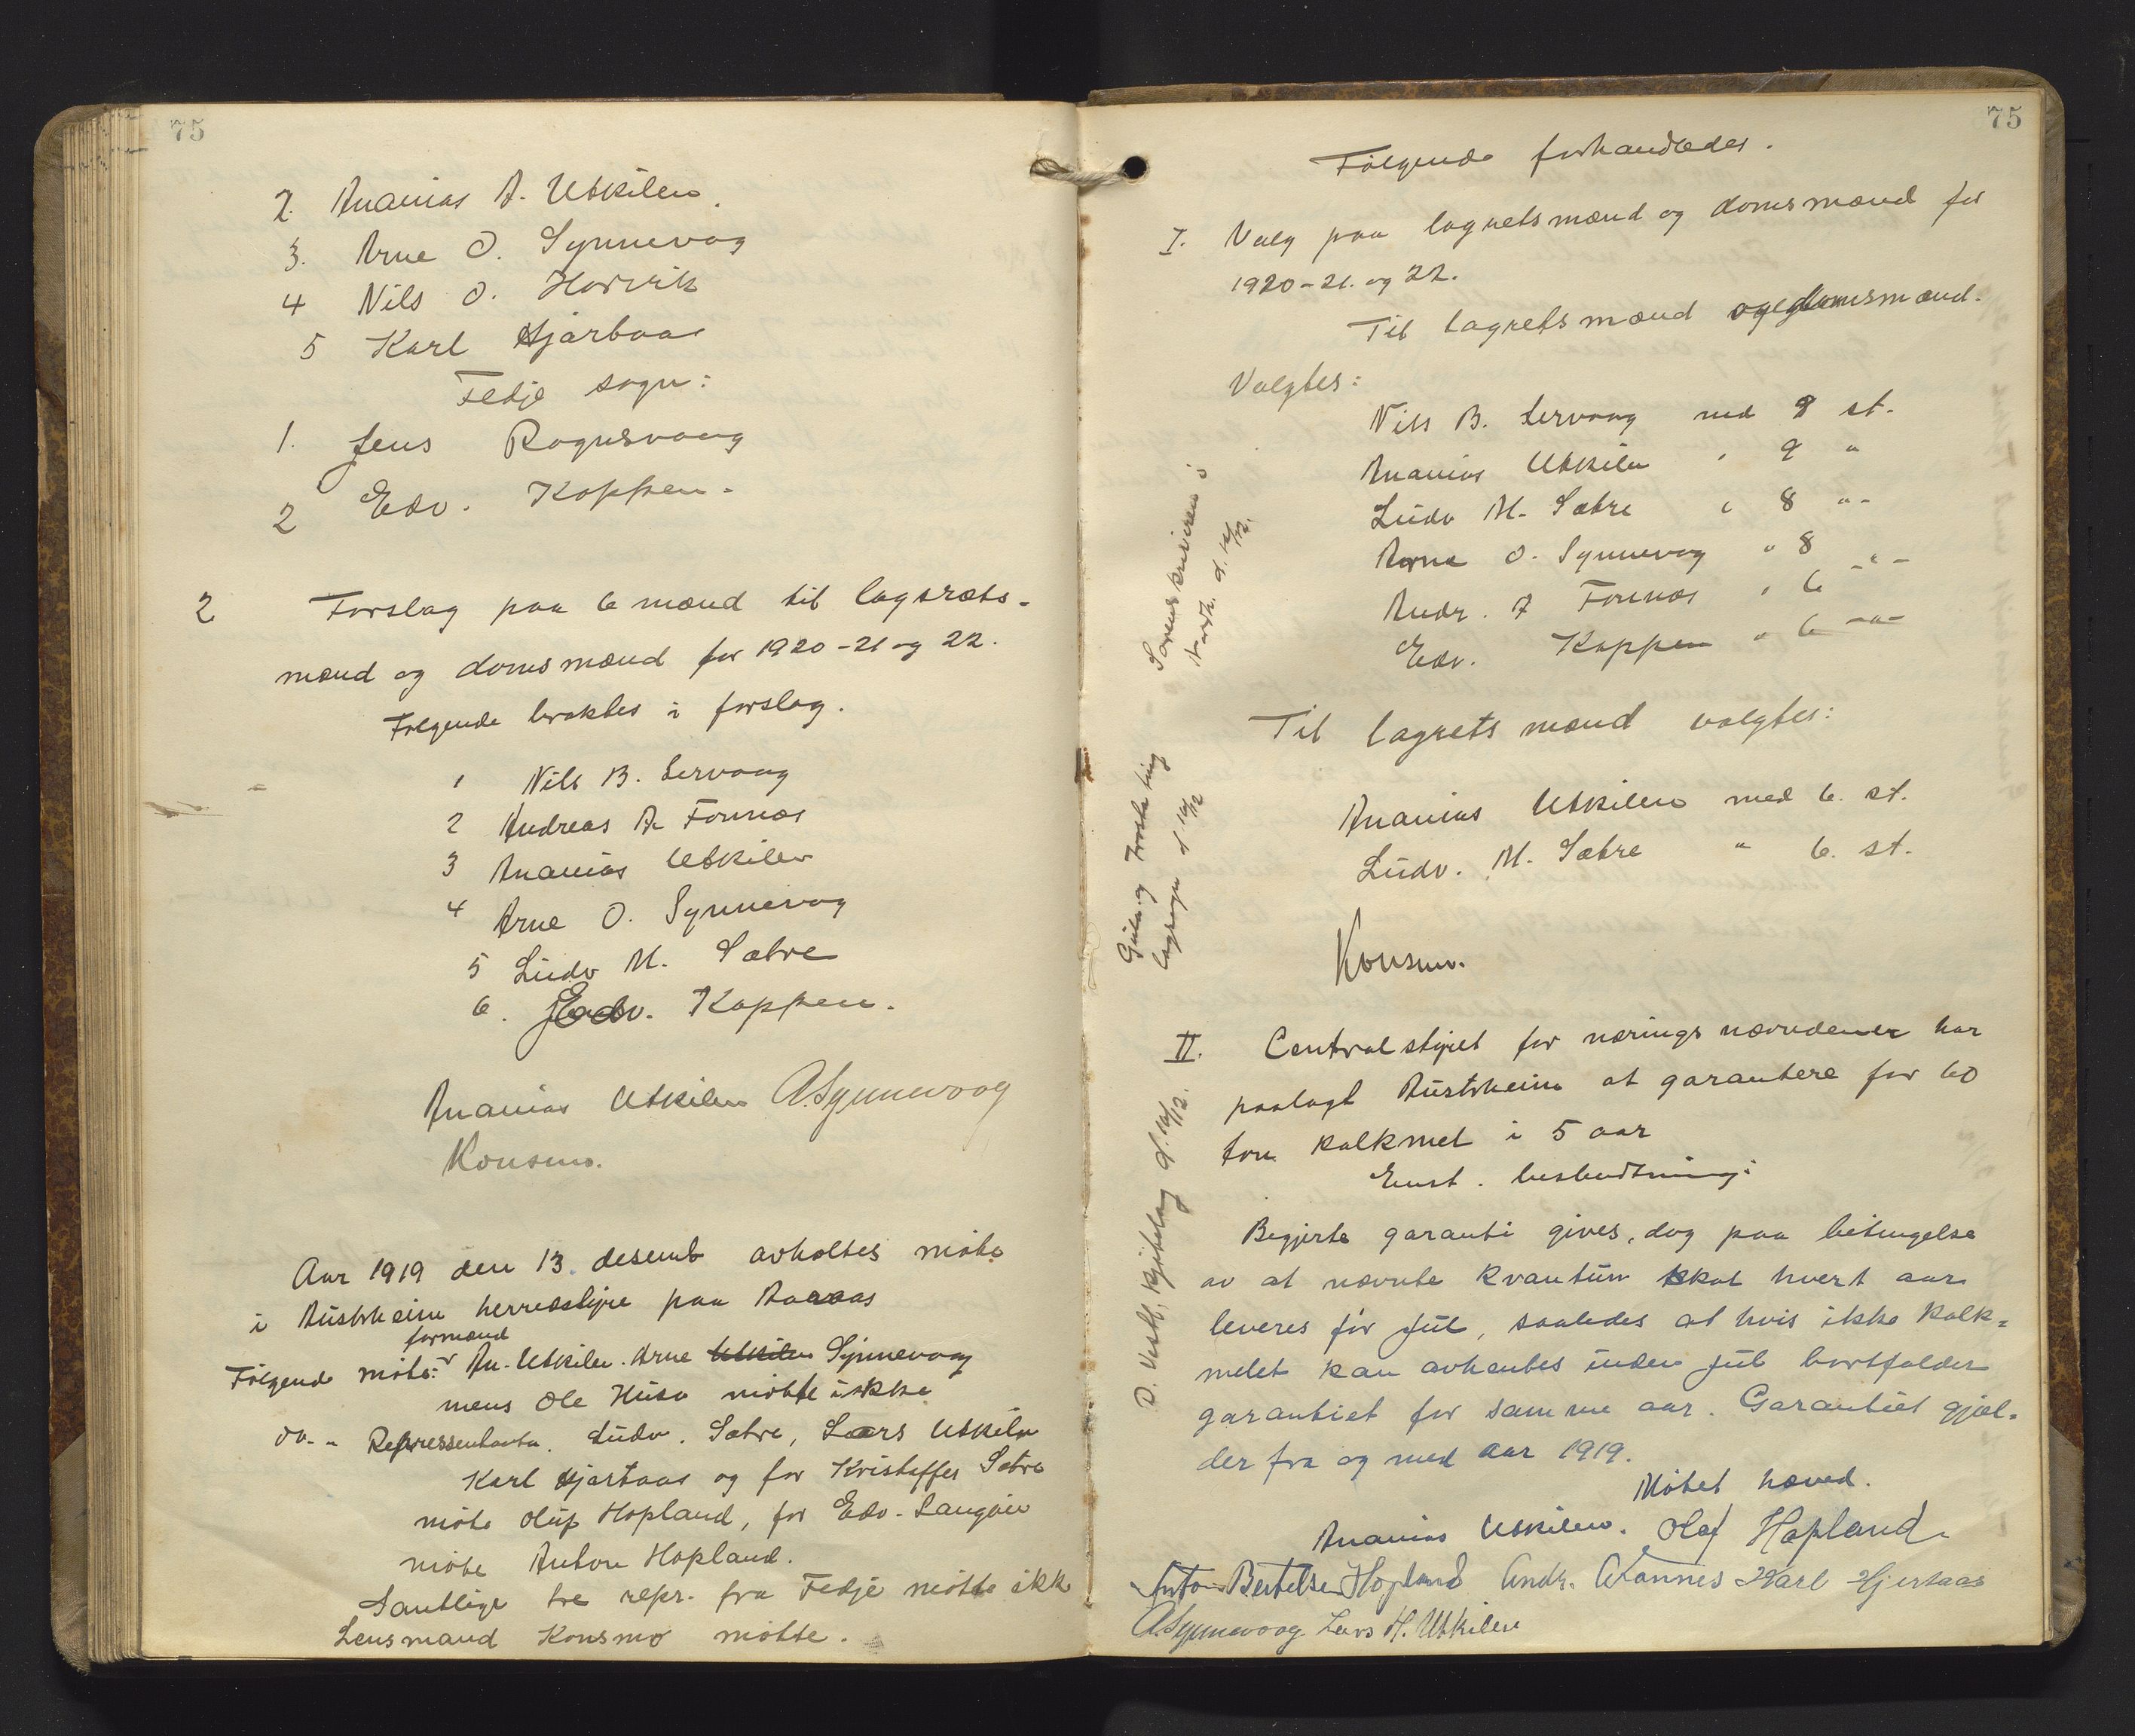 75
2. Ananias A. Utkilen.
3. Arne O. Synnevog
4 Nils O. Horvik
5 Karl Hjartaas
Fedje sogn:
1. Jens Rognsvaag
2 Edv. Koppen.
2 Forslag paa 6 mænd til lagsræts-
mænd og domsmænd for 1920-21 og 22.
Følgende braktes i forslag.
1 Nils B. Lervaag
2 Andreas A. Fonnes
3 Ananias Utkilen
4 Arne O. Synnevog
5 Ludv M. Sætre
6. Edv. Koppen.
Ananias Utkilen A. Synnevaag
Konsmo.
Aar 1919 den 13. desemb avholtes møte
i Austrheim herredstyre paa
formand
Følgende møte: An. Utkilen. Arne Utkilen Synnevaag
mens Ole Husø møtte ikke
Representanter. Ludv. Sætre, Lars Utkilen
Karl Hjartaas og for Kristoffer Sætre
møte Oluf Hopland, for Edv. Langøen
møte Anton Hopland.
Samtlige tre repr. fra Fedje møtte ikk
Lensmand Konsmo møtte.
75
Følgende forhandledes.
I. Valg paa lagretsmænd og domsmænd for
1920-21. og 22.
Til lagretsmænd og domsmænd.
Valgtes:
Nils B. Lervaag med 9 st.
Ananias Utkilen " 9 "
Ludv M. Sætre " 8 "-
Arne O. Synnevog " 8 -"-
Andr. A Fonnes " 6
Edv. Koppen " 6 -"-
Til lagrets mænd valgtes:
Ananias Utkilen med 6. st.
Ludv. M. Sætre " 6. st.
Konsmo.
Sorenskriveren i
Nordh. d. 16/12.
Gula og Frosta ting
lagsogn d 16/12
D. Vestl. Kjøtslag d. 16/12.
II. Centralstyret for nærings nævndener har
paalagt Austrheim at garantere for 60
ton kalkmel i 5 aar
Enst. beslutning:
Begjerte garanti gives, dog paa betingelse
av at nævnte kvantum skal hvert aar
leveres før jul, saaledes at hvis ikke kalk=
melet kan avhentes inden jul bortfalder
garantiet for samme aar. Garantiet gjæl-
der fra og med aar 1919.
Møtet hæved.
Ananias Utkilen. Olaf Hopland.
Anton Bertelsen Hopland Andr. A Fonnes Karl Hjertaas
A. Synnevaag Lars H. Utkilen